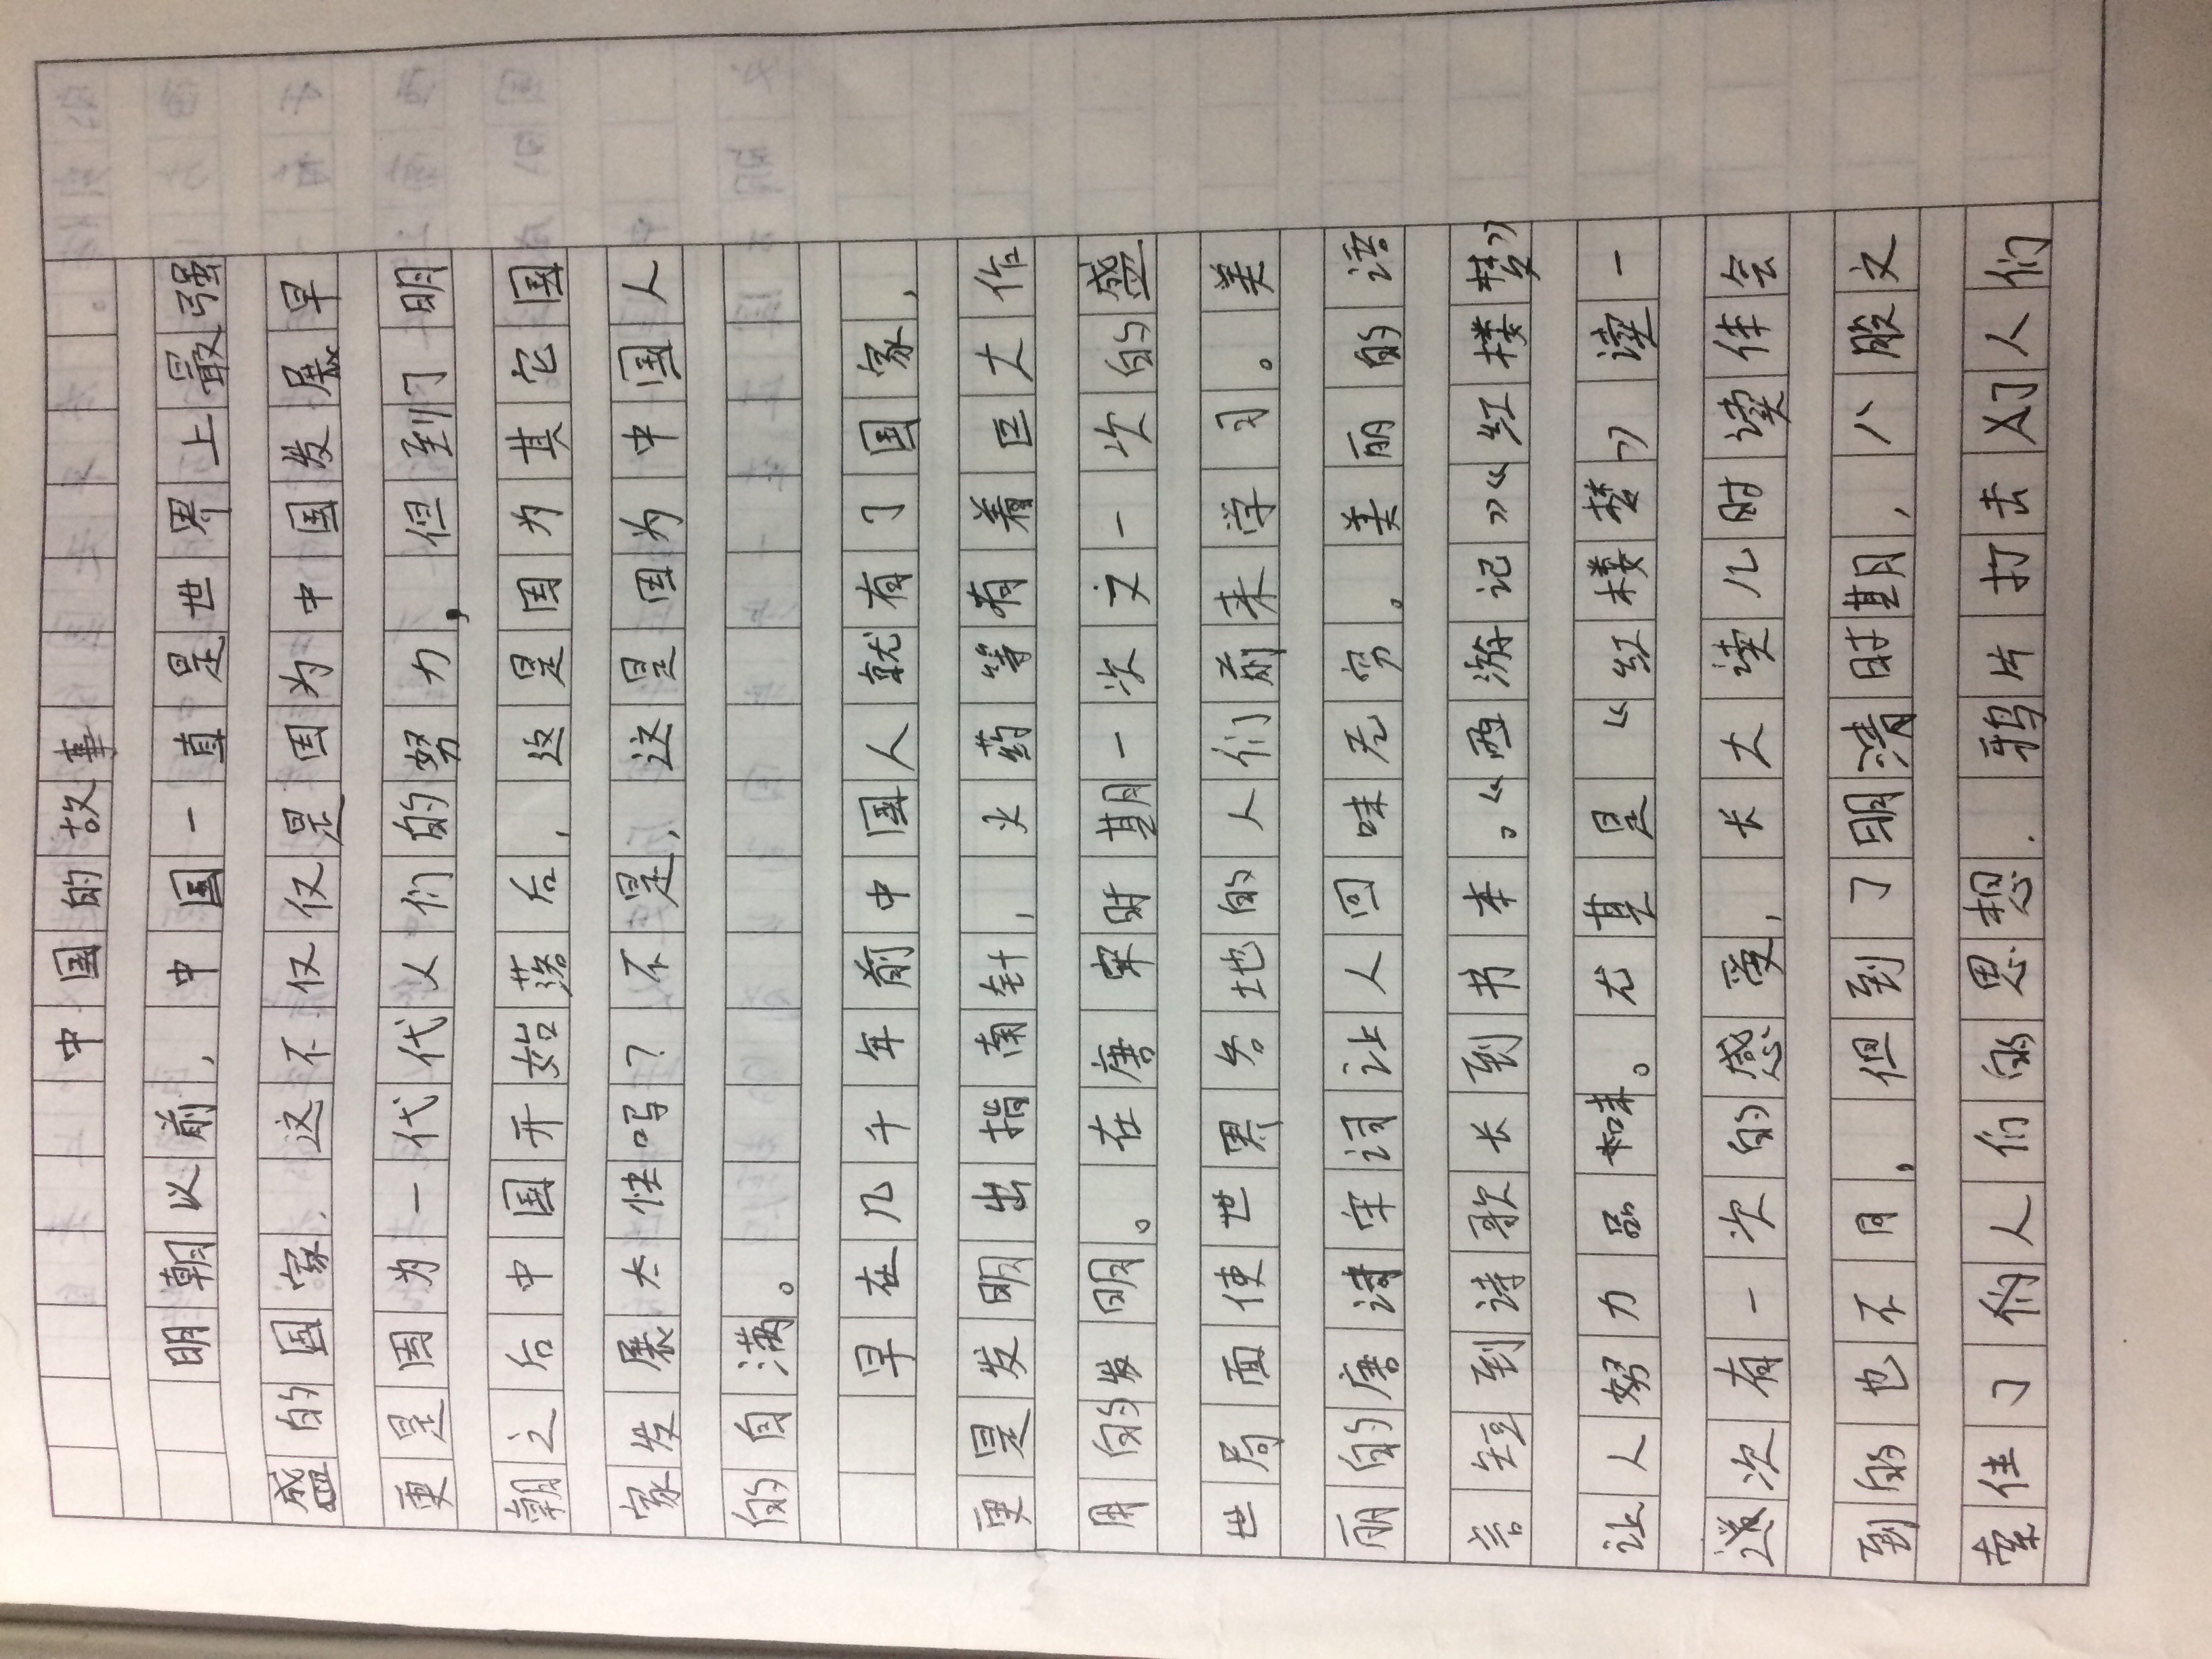 中国的故事。
明朝以前,中国一直是世界上最强
盛的国家,这不仅仅是因为中国发展早
更是因为一代代人们的努力,但到了明
朝之后中国开始落后,这是因为其它国
家发展太快吗?不是,这是因为中国人
的自满。
早在几千年前中国人就有了国家,
更是发明出指南针,火药等有着巨大作
用的发明。在唐宋时期一次次文一次的盛
世局面使世界各地的人们前来学习。美
丽的唐诗宋词让人回味无穷。美丽的语
言短到诗歌长到书本。《西游记》《红楼梦》
让人努力品味。尤其是《红楼梦》读一
遍次有一次的感受,长大读儿时读体会
到的也不同,但到了明清时期,八股文
索住了们人们的思想.鸦片打击对人们